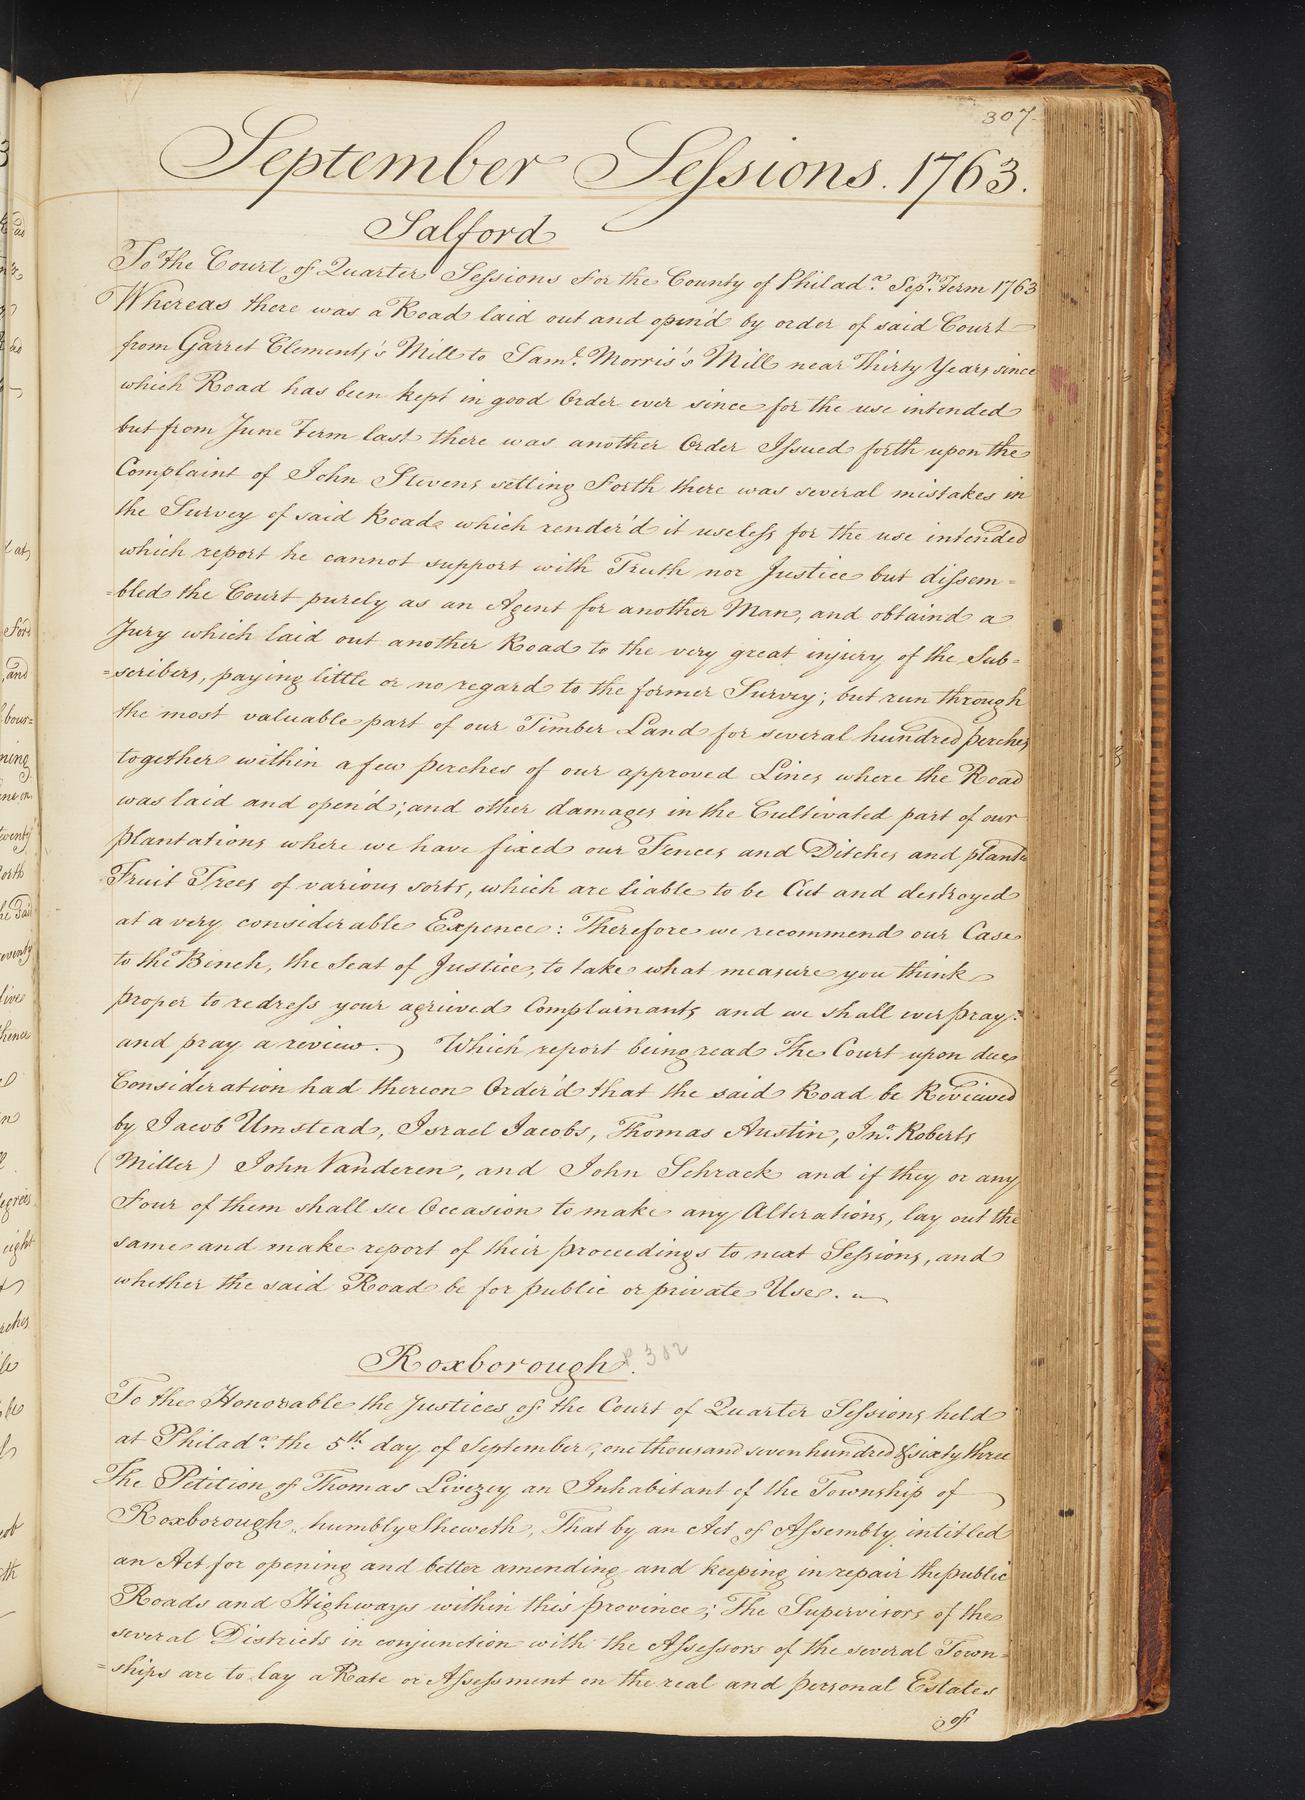 307
September Sessions. 1763.
Salford
To the Court of Quarter Sessions for the County of Philad.a Sep.r Term 1763
Whereas there was a Road laid out and open'd by order of said Court
from Garret Clements's Mill to Sam.l Morris's Mill near Thirty Years since
which Road has been kept in good Order ever since for the use intended
but from June Term last there was another Order Issued forth upon the
Complaint of John Stevens setting Forth there was several mistakes in
the Survey of said Road which render'd it useless for the use intended
which report he cannot support with Truth nor Justice but dissem=
=bled the Court purely as an Agent for another Man, and obtaind a
Jury which laid out another Road to the very great injury of the Sub=
=scribers, paying little or no regard to the former Survey; but run through
the most valuable part of our Timber Land for several hundred perches
together within a few perches of our approved Lines where the Road
was laid and open'd; and other damages in the Cultivated part of our
plantations where we have fixed our Fences and Ditches and plants
Fruit Trees of various sorts, which are liable to be Cut and destroyed
at a very considerable Expence: Therefore we recommend our Case
to the Binch, the Seat of Justice, to take what measure you think
proper to redress your agrieved Complainants and we shall ever pray:
and pray a review. Which report being read The Court upon due
Consideration had thereon Order'd that the said Road be Reviewed
by Jacob Umstead, Israel Jacobs, Thomas Austin, Jn.o Roberts
(Miller) John Vanderen, and John Schrack and if they or any
Four of them shall see Occasion to make any Alterations, lay out the
same and make report of their proceedings to next Sessions, and
whether the said Road be for public or private Use.
Roxborough. p 302
To the Honorable the Justices of the Court of Quarter Sessions held
at Philad.a the 5th day of September, one thousand seven hundred & sixty three
The Petition of Thomas Livezey an Inhabitant of the Township of
Roxborough, humbly Sheweth, That by an Act of Assembly intitled
an Act for opening and better amending and keeping in repair the public
Roads and Highways within this province; The Supervisors of the
several Districts in conjunction with the Assessors of the several Town=
=ships are to lay a Rate or Assessment on the real and personal Estates
of